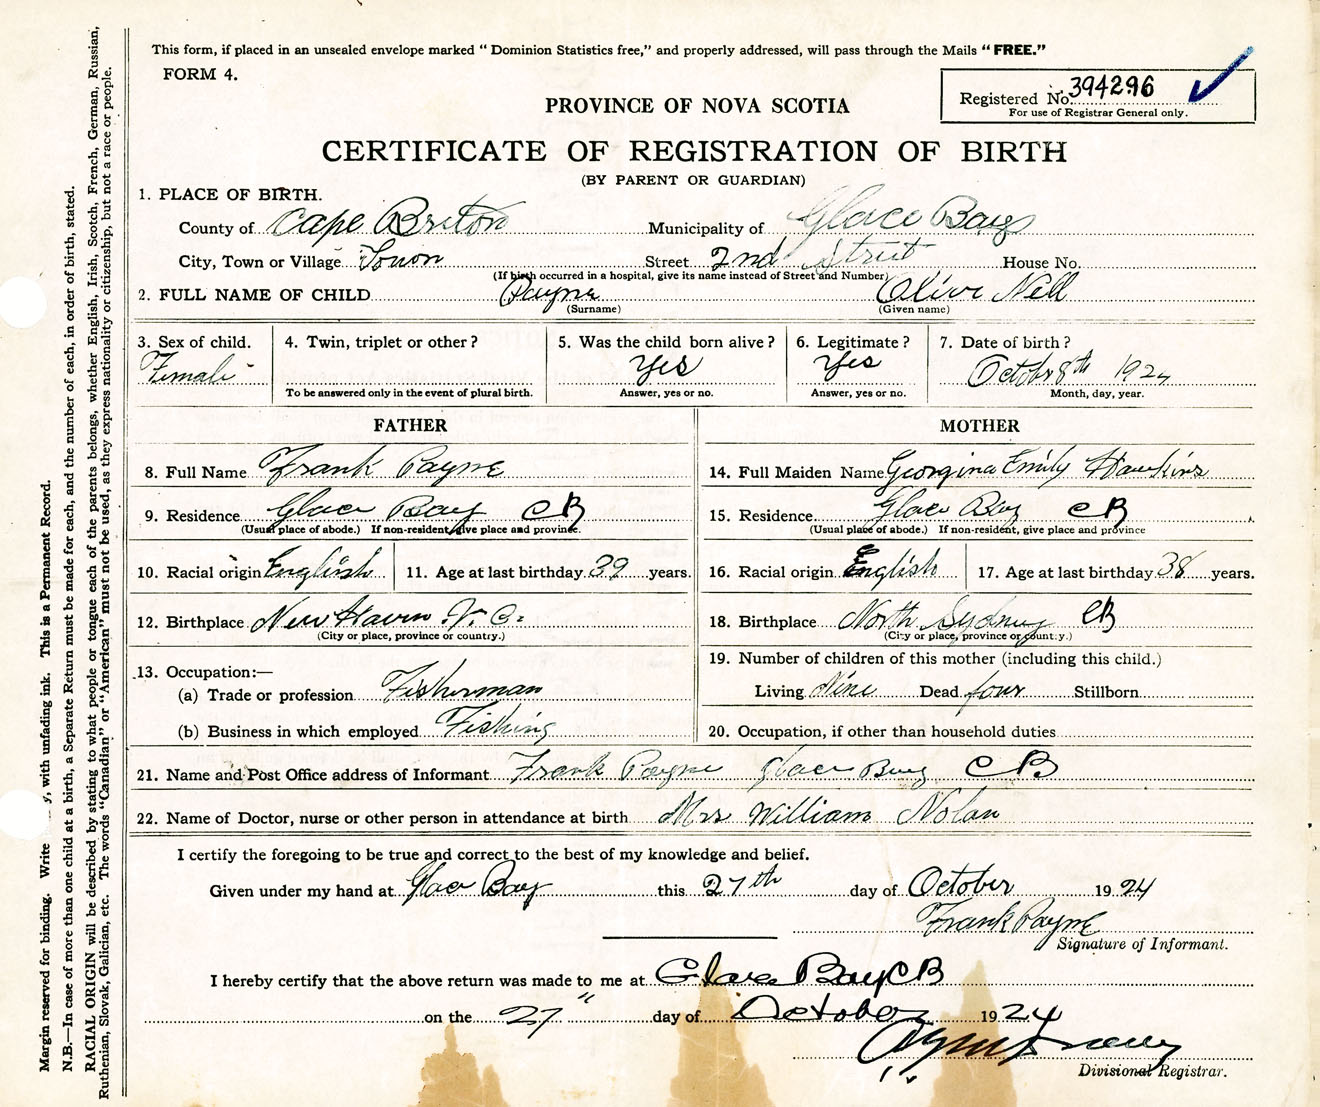 This form, if placed in an unsealed envelope marked "Dominion Statistics free," and properly addressed, will pass through the Mails "FREE."
FORM 4.
Registered No. 394296
For use of Registrar General only.
PROVINCE OF NOVA SCOTIA
CERTIFICATE OF REGISTRATION OF BIRTH
(BY PARENT OR GUARDIAN)
1. PLACE OF BIRTH.
County of Cape Breton Municipality of Glace Bay
City, Town or Village Town Street 2nd Street House No.
(If birth occurred in a hospital, give its name instead of Street and Number)
2. FULL NAME OF CHILD Payne Olive Nell
(Surname) (Given name)
3. Sex of child. 4. Twin, triplet or other? 5. Was the child born alive? 6. Legitimate? 7. Date of birth?
Female Yes Yes October 8th 1924
To be answered only in the event of plural birth. Answer, yes or no. Answer, yes or no. Month, day, year.
FATHER MOTHER
8. Full Name Frank Payne 14. Full Maiden Name Georgina Emily Hawkins
9. Residence Glace Bay CB 15. Residence Glace Bay CB
(Usual place of abode.) If non-resident, give place and province. (Usual place of abode.) If non-resident, give place and province
10. Racial origin English 11. Age at last birthday 39 years. 16. Racial origin English 17. Age at last birthday 38 years.
12. Birthplace New Haven V. C. 18. Birthplace North Sydney CB
(City or place, province or country.) (City or place, province or country.)
13. Occupation:— 19. Number of children of this mother (including this child.)
(a) Trade or profession Fisherman Living Nine Dead four Stillborn
(b) Business in which employed Fishing 20. Occupation, if other than household duties
21. Name and Post Office address of Informant Frank Payne Glace Bay CB
22. Name of Doctor, nurse or other person in attendance at birth Mrs William Nolan
I certify the foregoing to be true and correct to the best of my knowledge and belief.
Given under my hand at Glace Bay this 27th day of October 1924
Frank Payne
Signature of Informant.
I hereby certify that the above return was made to me at Glace Bay CB
on the 27" day of October 1924
Divisional Registrar.
Margin reserved for binding. Write y, with unfading ink. This is a Permanent Record.
N.B.—In case of more than one child at a birth, a Separate Return must be made for each, and the number of each, in order of birth, stated.
RACIAL ORIGIN will be described by stating to what people or tongue each of the parents belongs, whether English, Irish, Scotch, French, German, Russian,
Ruthenian, Slovak, Galician, etc. The words "Canadian" or "American" must not be used, as they express nationality or citizenship, but not a race or people.